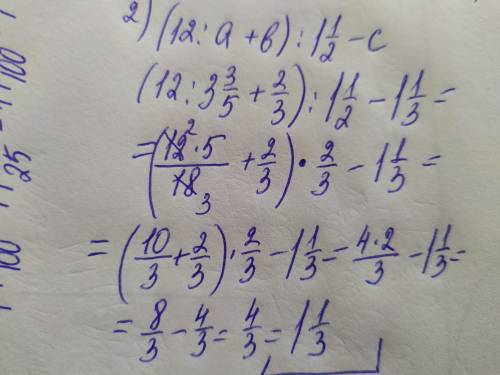 2) (12 : a + b) : 1 1/2 − c
(12 : 3 3/5 + 2/3) : 1 1/2 − 1 1/3 =
= (12² · 5 / 18 3 + 2/3) · 2/3 − 1 1/3 =
= (10/3 + 2/3) · 2/3 − 1 1/3 = 4·2/3 − 1 1/3 =
= 8/3 − 4/3 = 4/3 = 1 1/3
100
25
100